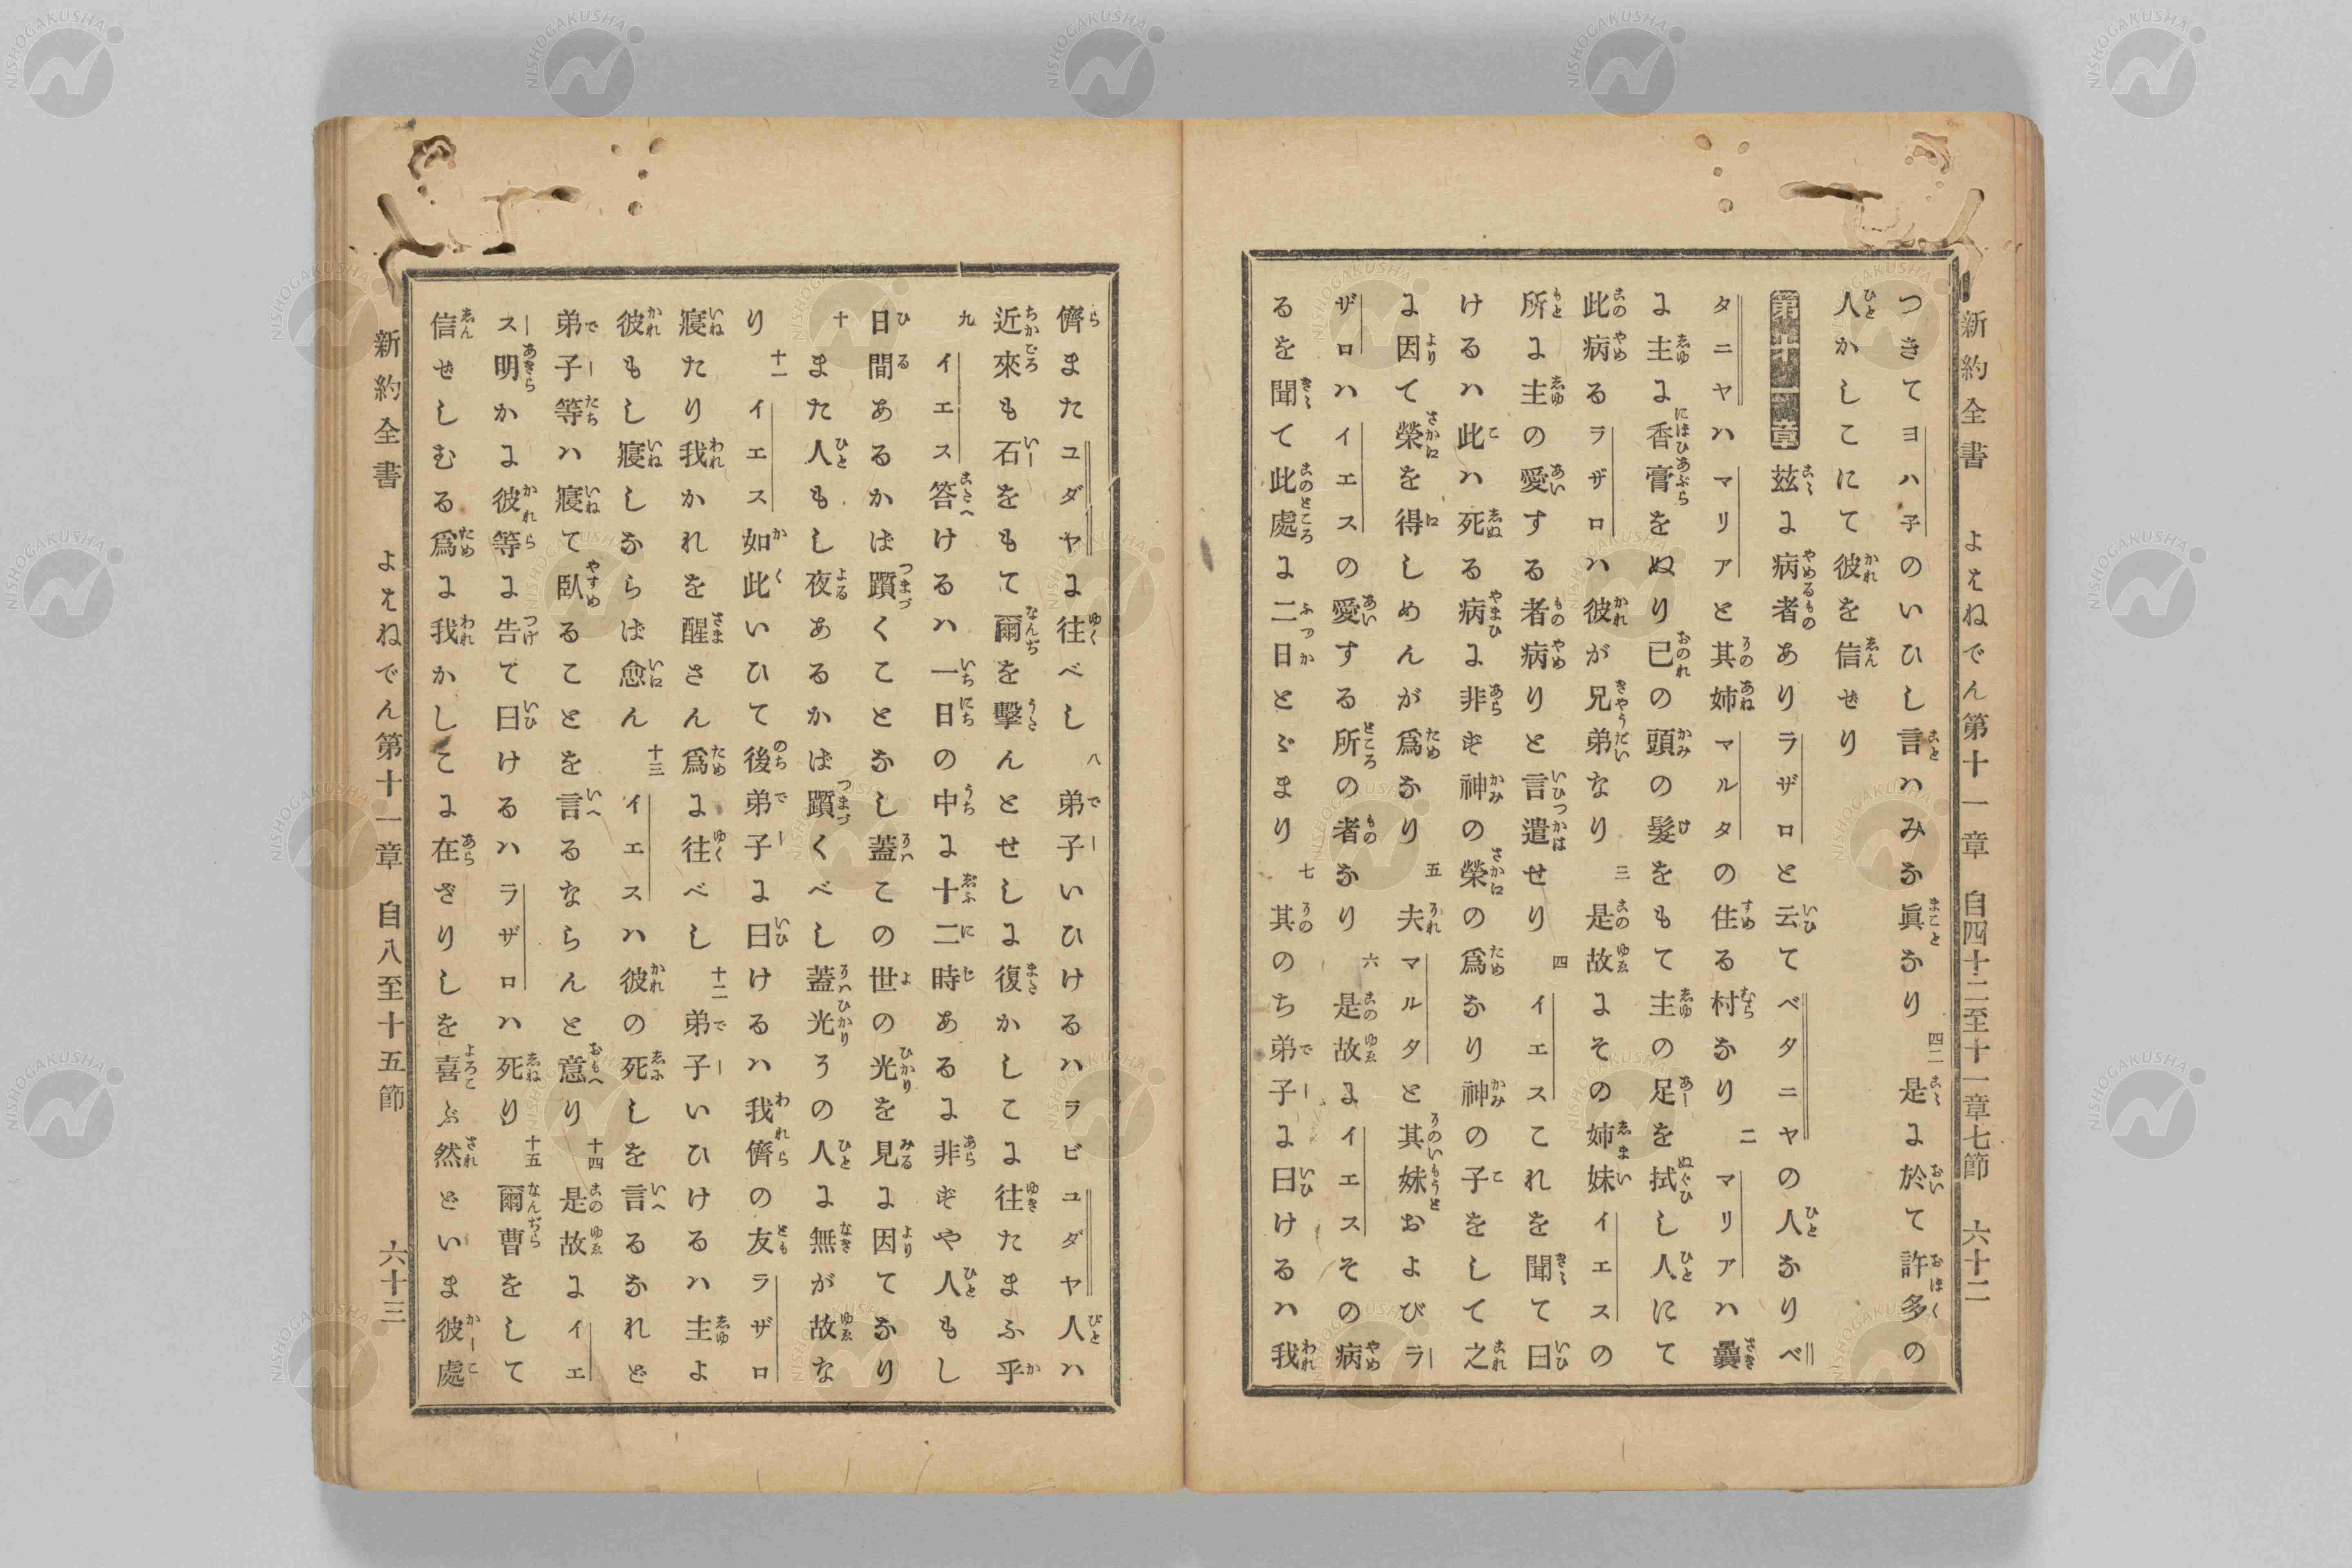 新約全書 よはねでん第十一章 自四十二至十一章七節 六十二
つきてヨハ子のいひし言ハみな眞なり 四二 是に於て許多の
人かしこにて彼を信せり
第十一章 玆に病者ありラザロと云てベタニヤの人なりベ
タニヤハマリアと其姉マルタの住る村なり 二 マリアハ曩
に主に香膏をぬり己の頭の髮をもて主の足を拭し人にて
此病るラザロハ彼が兄弟なり 三 是故にその姉妹イエスの
所に主の愛する者病りと言遣せり 四 イエスこれを聞て曰
けるハ此ハ死る病に非ず神の榮の爲なり神の子をして之
に因て榮を得しめんが爲なり 五 夫マルタと其妹およびラ
ザロハイエスの愛する所の者なり 六 是故にイエスその病
るを聞て此處に二日とゞまり 七 其のち弟子に曰けるハ我
儕またユダヤに往べし 八 弟子いひけるハラビユダヤ人ハ
近來も石をもて爾を擊んとせしに復かしこに往たまふ乎
九 イエス答けるハ一日の中に十二時あるに非ずや人もし
日間あるかば躓くことなし蓋この世の光を見に因てなり
十 また人もし夜あるかば躓くべし蓋光その人に無が故な
り 十一 イエス如此いひて後弟子に曰けるハ我儕の友ラザロ
寢たり我かれを醒さん爲に往べし 十二 弟子いひけるハ主よ
彼もし寢しならば愈ん 十三 イエスハ彼の死しを言るなれど
弟子等ハ寢て臥ることを言るならんと意り 十四 是故にイエ
ス明かに彼等に告て曰けるハラザロハ死り 十五 爾曹をして
信せしむる爲に我かしこに在ざりしを喜ぶ然どいま彼處
新約全書 よはねでん第十一章 自八至十五節 六十三
NISHOGAKUSHA